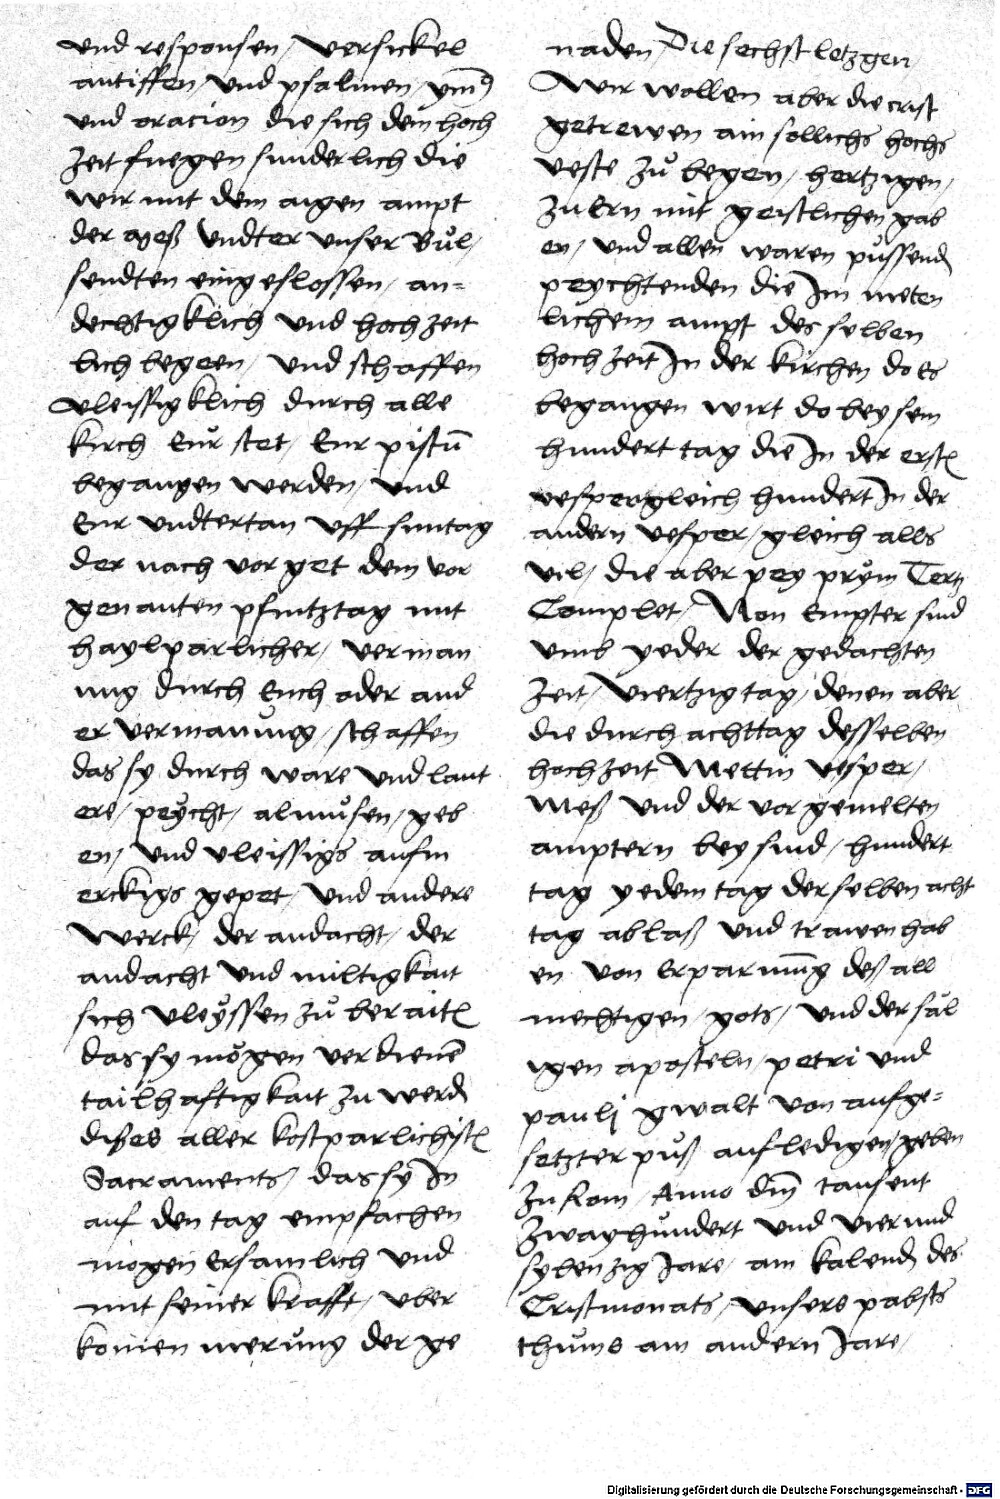 vnd responsen / versickel
antiffen / vnd psalmen / ym̄9
vnd oracion die sich dem hoch
zeit fuegen sunderlich die
wir mit dem aigen ampt
der meß vndter vnser Bůl /
sendten eingeslossen / an=
dechtigklich vnd hochzeit
lich begeen / vnd schaffen
vleissigklich durch alle
kirch Eur stet / Eur pistū
begangen werden / vnd
Eur vndtertan vff suntag
der nach vor get dem vor
genanten pfintztag mit
haylparlicher / verman
ung durch Euch oder and
er vermanung / schaffen
das sy durch ware vnd laut
ere / peycht / almůsen / geb
en / vnd vleissigs aufm
erckigs gepet / vnd andere
Werck / der andacht / der
andacht vnd miltigkait
sich vleyssen zů berait
das sy mögen verdienē
tailhaftigkait zu werdn
dißes aller kostparlichist
Sacraments / das sy In
auf den tag empfachen
mögen ersamlich vnd
mit seiner krafft / vber
komen merung der ge
naden / Die sechst letzgen /
Wir wollen aber die crist
getrewen ain sollichs hochs
veste zů begen / hertzigen /
zu Ern mit geistlichen gab
en / vnd allen waren půssendn
peychtenden die Im meten
lichem ampt des selben
hochzeit In der kirchen do es
begangen wirt do bey sein
hundert tag die In der erst
vespergleich hundert In der
andern vesper / gleich alls
vil / die aber pey prym Tertz
Complet / Non Empter sind
vmb yeder der gedachten
zeit / viertzig tag / denen aber
die durch achttag desselben
hochzeit Mettin vesper /
Meß vnd der vor gemelten
amptern bey sind / hundert
tag yedem tag der selben acht
tag ablaß vnd trawen hab
en von Erparmūg deß all
mechtigen / gots / vnd der säl
igen aposteln / petri vnd
pauli gwalt von aufge=
setzter půß auf ledigen / geben
zu Rom / Anno dm̄ tausent
zwayhundert vnd vier und
sybenzig Jare / am kalendn des
Cristmonats / vnsers pabsts
thums am andern Jare /
Digitalisierung gefördert durch die Deutsche Forschungsgemeinschaft - DFG